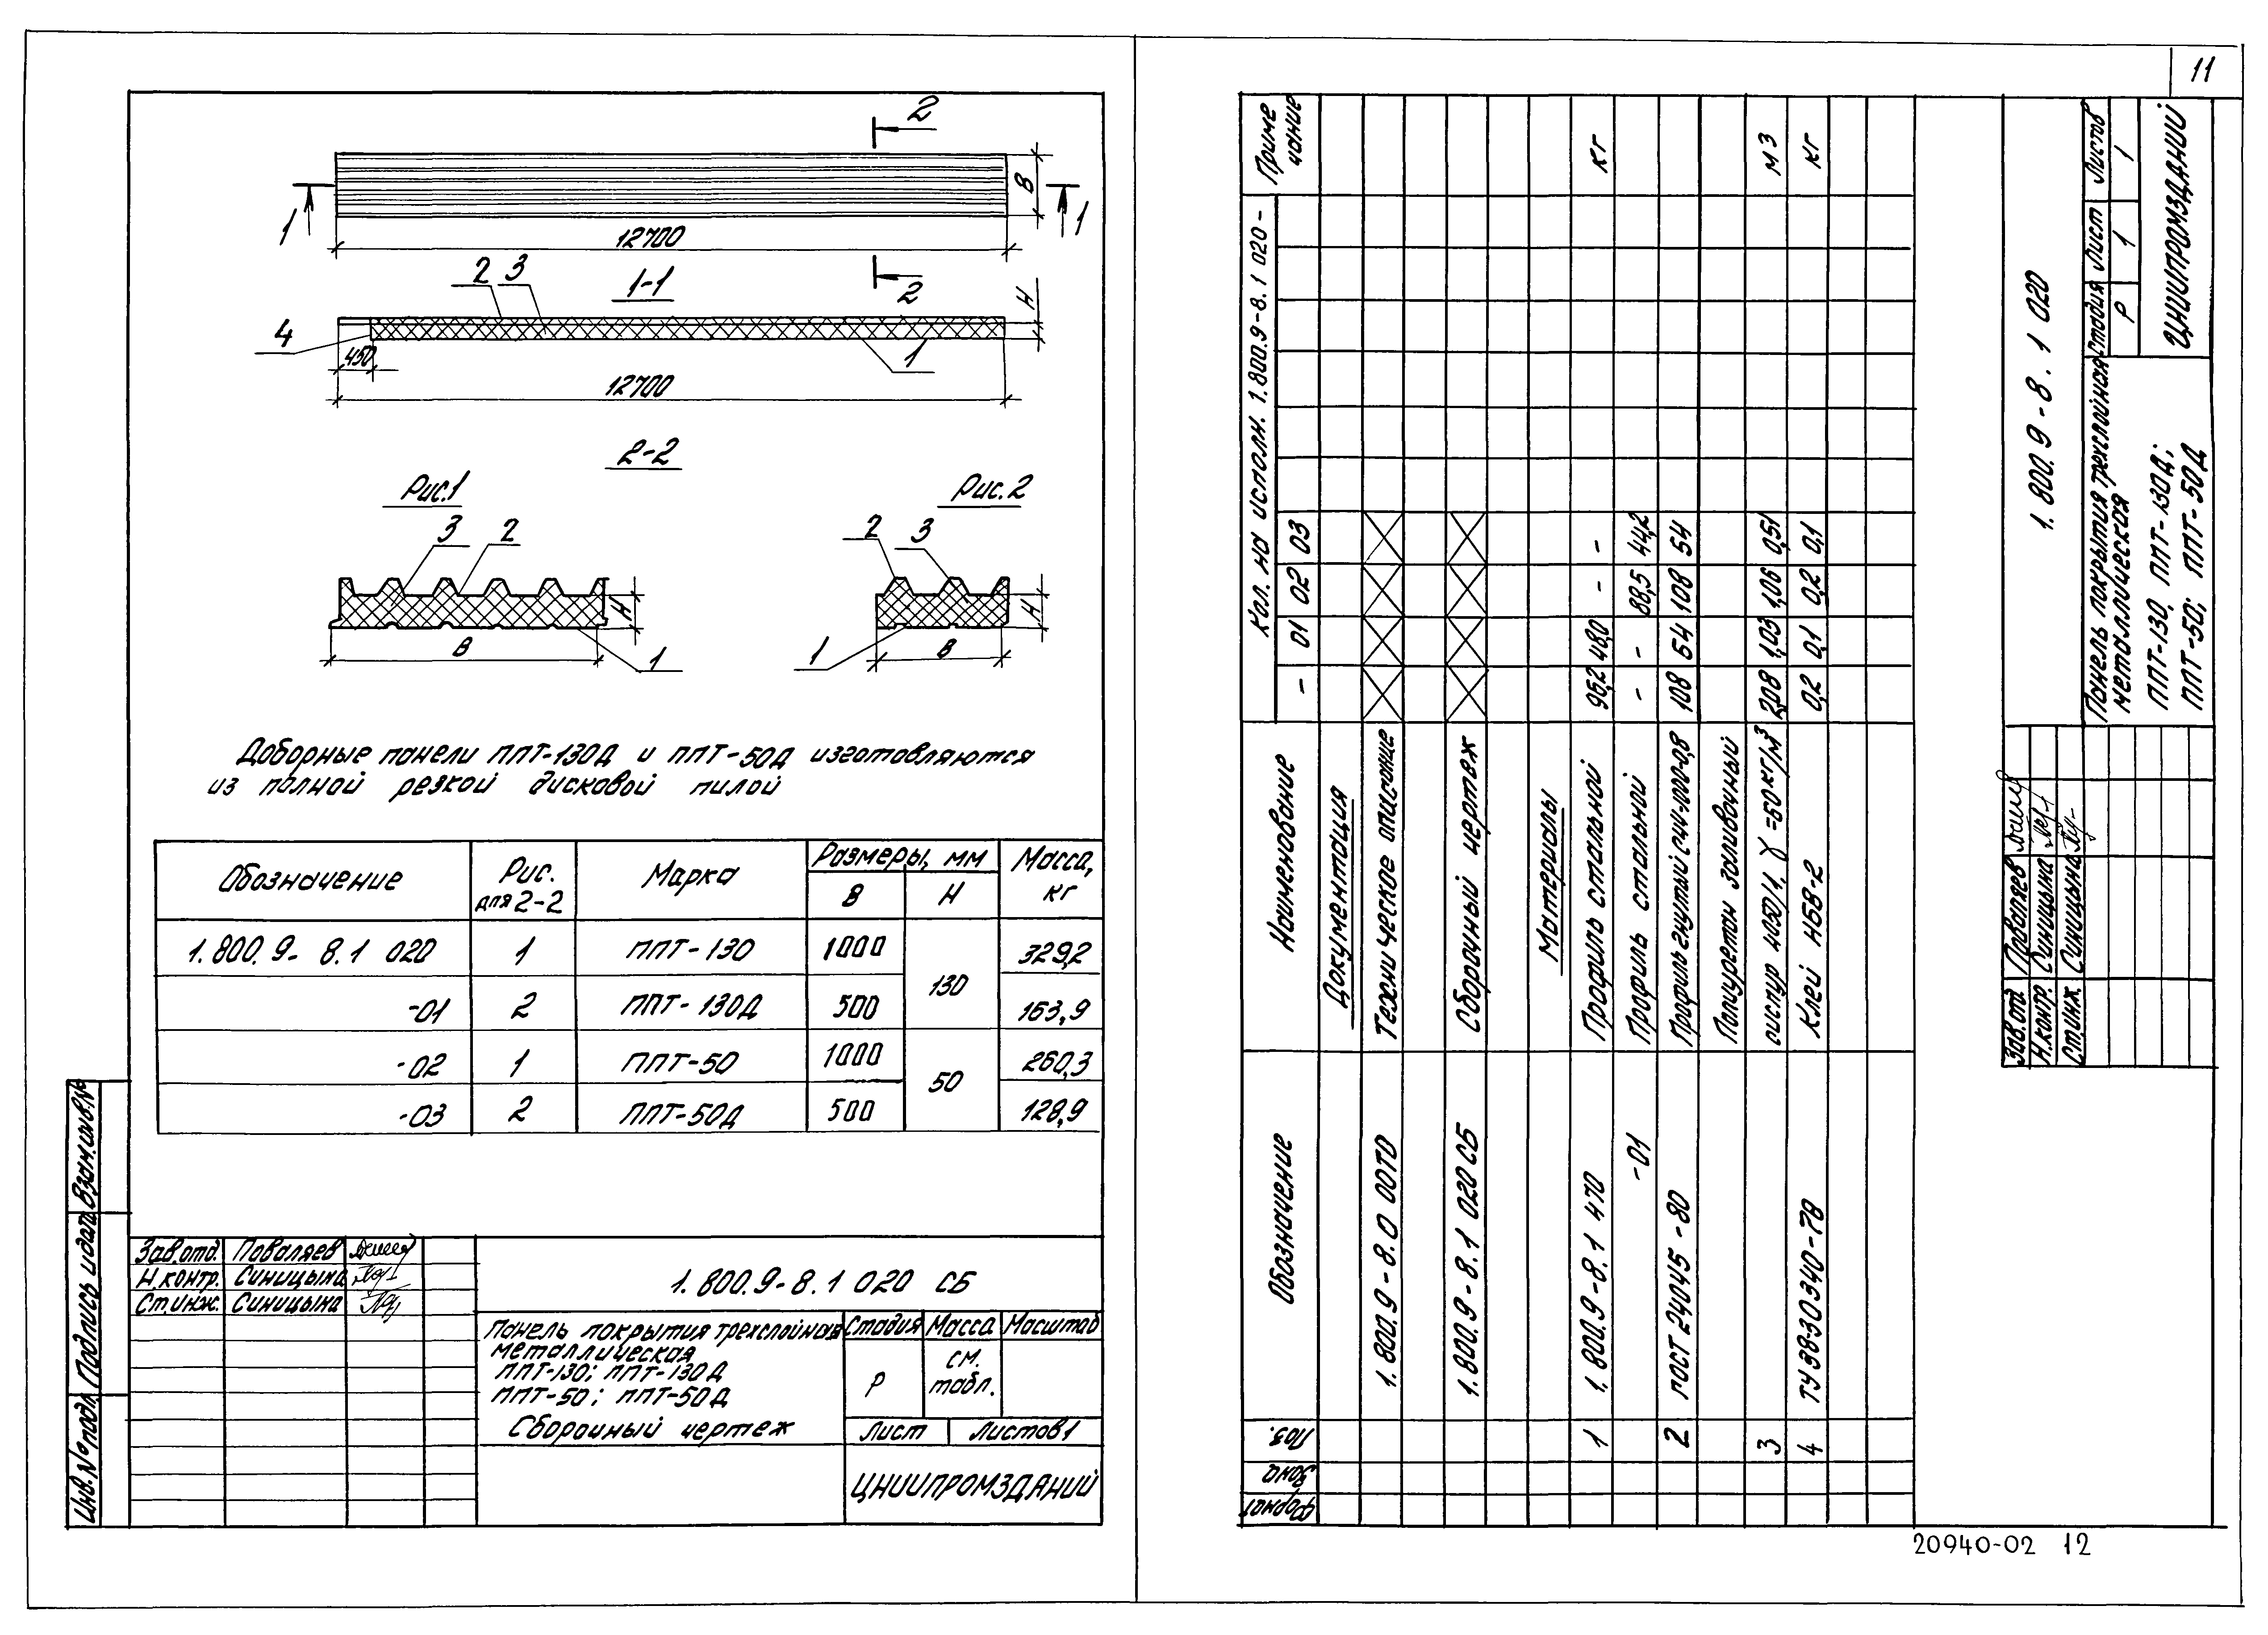 11
2
1
1
В
12700
2
2 3
1-1
Н
4
450
1
12700
2-2
Рис.1
Рис.2
3 2
2 3
Н
Н
В
1
1
В
Доборные панели ППТ-130Д и ППТ-50Д изготовляются
из полной резкой дисковой пилой
Обозначение Рис. для 2-2 Марка Размеры, мм Масса, кг
В Н
1.800.9-8.1 020 1 ППТ-130 1000 130 329,2
-01 2 ППТ-130Д 500 163,9
-02 1 ППТ-50 1000 50 260,3
-03 2 ППТ-50Д 500 128,9
Инв.№ подл. Подпись и дата Взам.инв.№
Зав.отд. Поваляев
Н.контр. Синицына
Ст.инж. Синицына
1.800.9-8.1 020 СБ
Панель покрытия трехслойная
металлическая
ППТ-130; ППТ-130Д
ППТ-50; ППТ-50Д
Сборочный чертеж
Стадия Масса Масштаб
Р см. табл.
Лист Листов 1
ЦНИИПРОМЗДАНИЙ
Формат Зона Поз. Обозначение Наименование Кол. на исполн. 1.800.9-8.1 020 - Приме чание
- 01 02 03
Документация
1.800.9-8.0 00ТО Техническое описание
1.800.9-8.1 020 СБ Сборочный чертеж
Материалы
1 1.800.9-8.1 470 Профиль стальной 95,2 48,0 - - кг
-01 Профиль стальной - - 88,5 44,2
2 ГОСТ 24045-80 Профиль гнутый С44-1000-0,8 108 54 108 54
Полиуретан заливочный
3 изпур 405П/1, γ=50кг/м³ 2,08 1,03 1,06 0,51 м3
4 ТУ38-30340-78 Клей Н68-2 0,2 0,1 0,2 0,1 кг
1.800.9-8.1 020
Зав.отд. Поваляев
Н.контр. Синицына
Ст.инж. Синицына
Панель покрытия трехслойная
металлическая
ППТ-130, ППТ-130Д;
ППТ-50; ППТ-50Д
Стадия Лист Листов
Р 1 1
ЦНИИПРОМЗДАНИЙ
20940-02 12